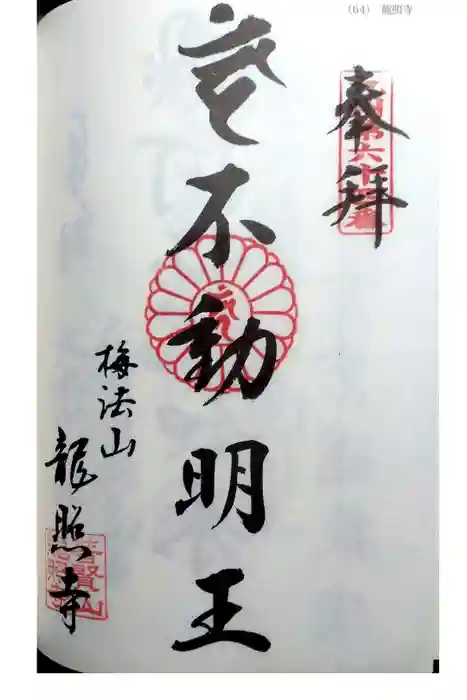 (64) 龍照寺
奉拝
不動明王
梅法山
龍照寺